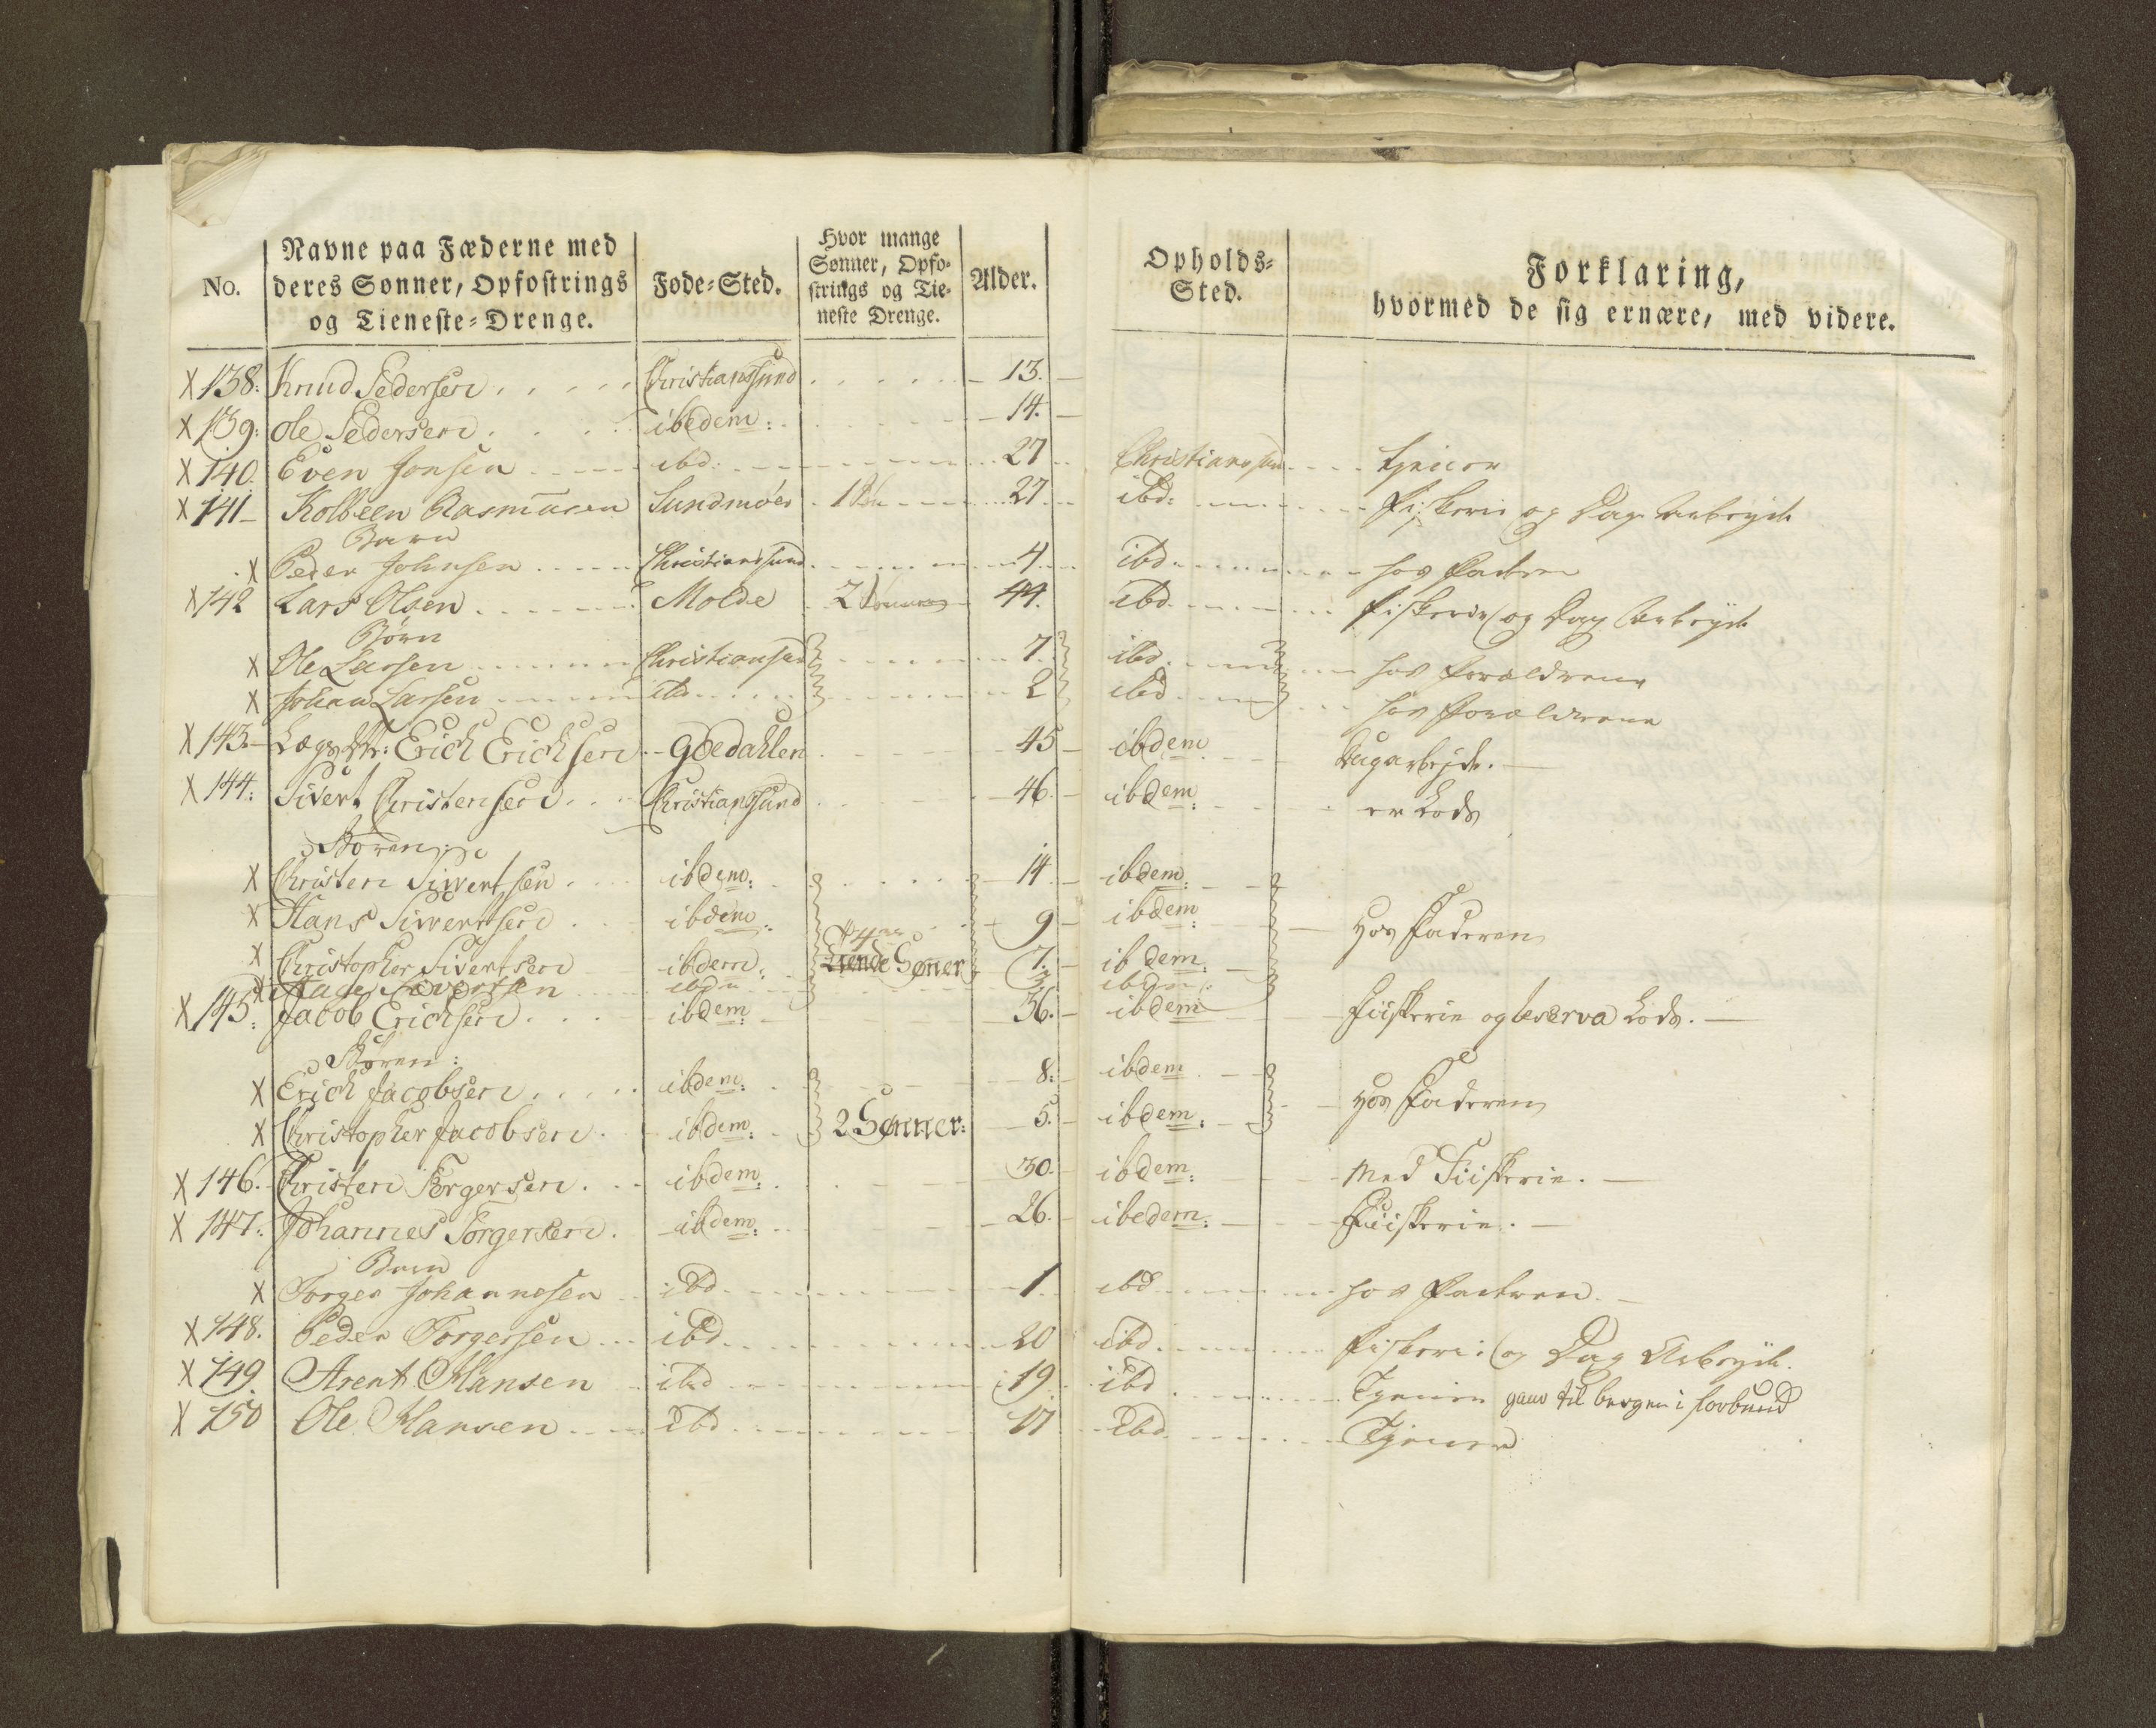 No. Navne paa Fæderne med deres Sønner, Opfostrings og Tieneste-Drenge. Føde-Sted. Hvor mange Sønner, Opfostrings og Tieneste Drenge. Alder. Opholds-Sted. Forklaring, hvormed de sig ernære, med videre.
X 138: Knud Pedersen Christianssund 13.
X 139: Ole Pedersen ibedem: 14.
X 140. Even Jonsen ibd. 27 Christianssund tjener
X 141 Kolbeen Rasmusen Sundmöer 1 27 ibd: Fiskerie og Dag Arbeyde
Barn
X Peder Johnsen Christianssund 4 ibd hos Fadren
X 142 Lars Olsen Molde 2 Sønner 44. ibd Fiskerie og Dag Arbeyde
Börn
X Ole Larsen Christiansund 7 ibd hos Forældrene
X Johan Larsen ibd 2 ibd hos Forældrene
X 143. Lægds Mr: Erich Erichsen Gdedahlen 45 ibdem Dagarbejde.
X 144: Sivert Christensen Christianssund 46. ibdem: er Lods
Børen:
X Christen Sivertsen ibdem: 14 ibdem:
X Hans Sivertsen ibdem: 9 ibdem: Hos Faderen
X Christopher Sivertsen ibdem: Sønner 7. ibdem:
X Aage Sivertsen ibdm 3 ibdm:
X 145: Jacob Erichsen ibdem: 36. ibdem Fiskerie og reserva Lods.
Børen:
X Erich Jacobsen ibdem: 8: ibdem
X Christopher Jacobsen ibdem: 2 Sønner: 5. ibdem: Hos Faderen
X 146. Christen Torgersen ibdem: 30. ibdem: Med Fiskerie.
X 147: Johannes Torgersen ibdem: 26. ibedem: Fiskerie.
Barn
X Torger Johannesen ibd 1 ibd hos Fadren
X 148. Peder Torgersen ibd 20 ibd Fiskeri og Dag Arbeyde.
X 149. Arent Hansen ibd 19 ibd Tjener gaar til bergen i forbund
X 150 Ole Hansen ibd 17 ibd Tjener